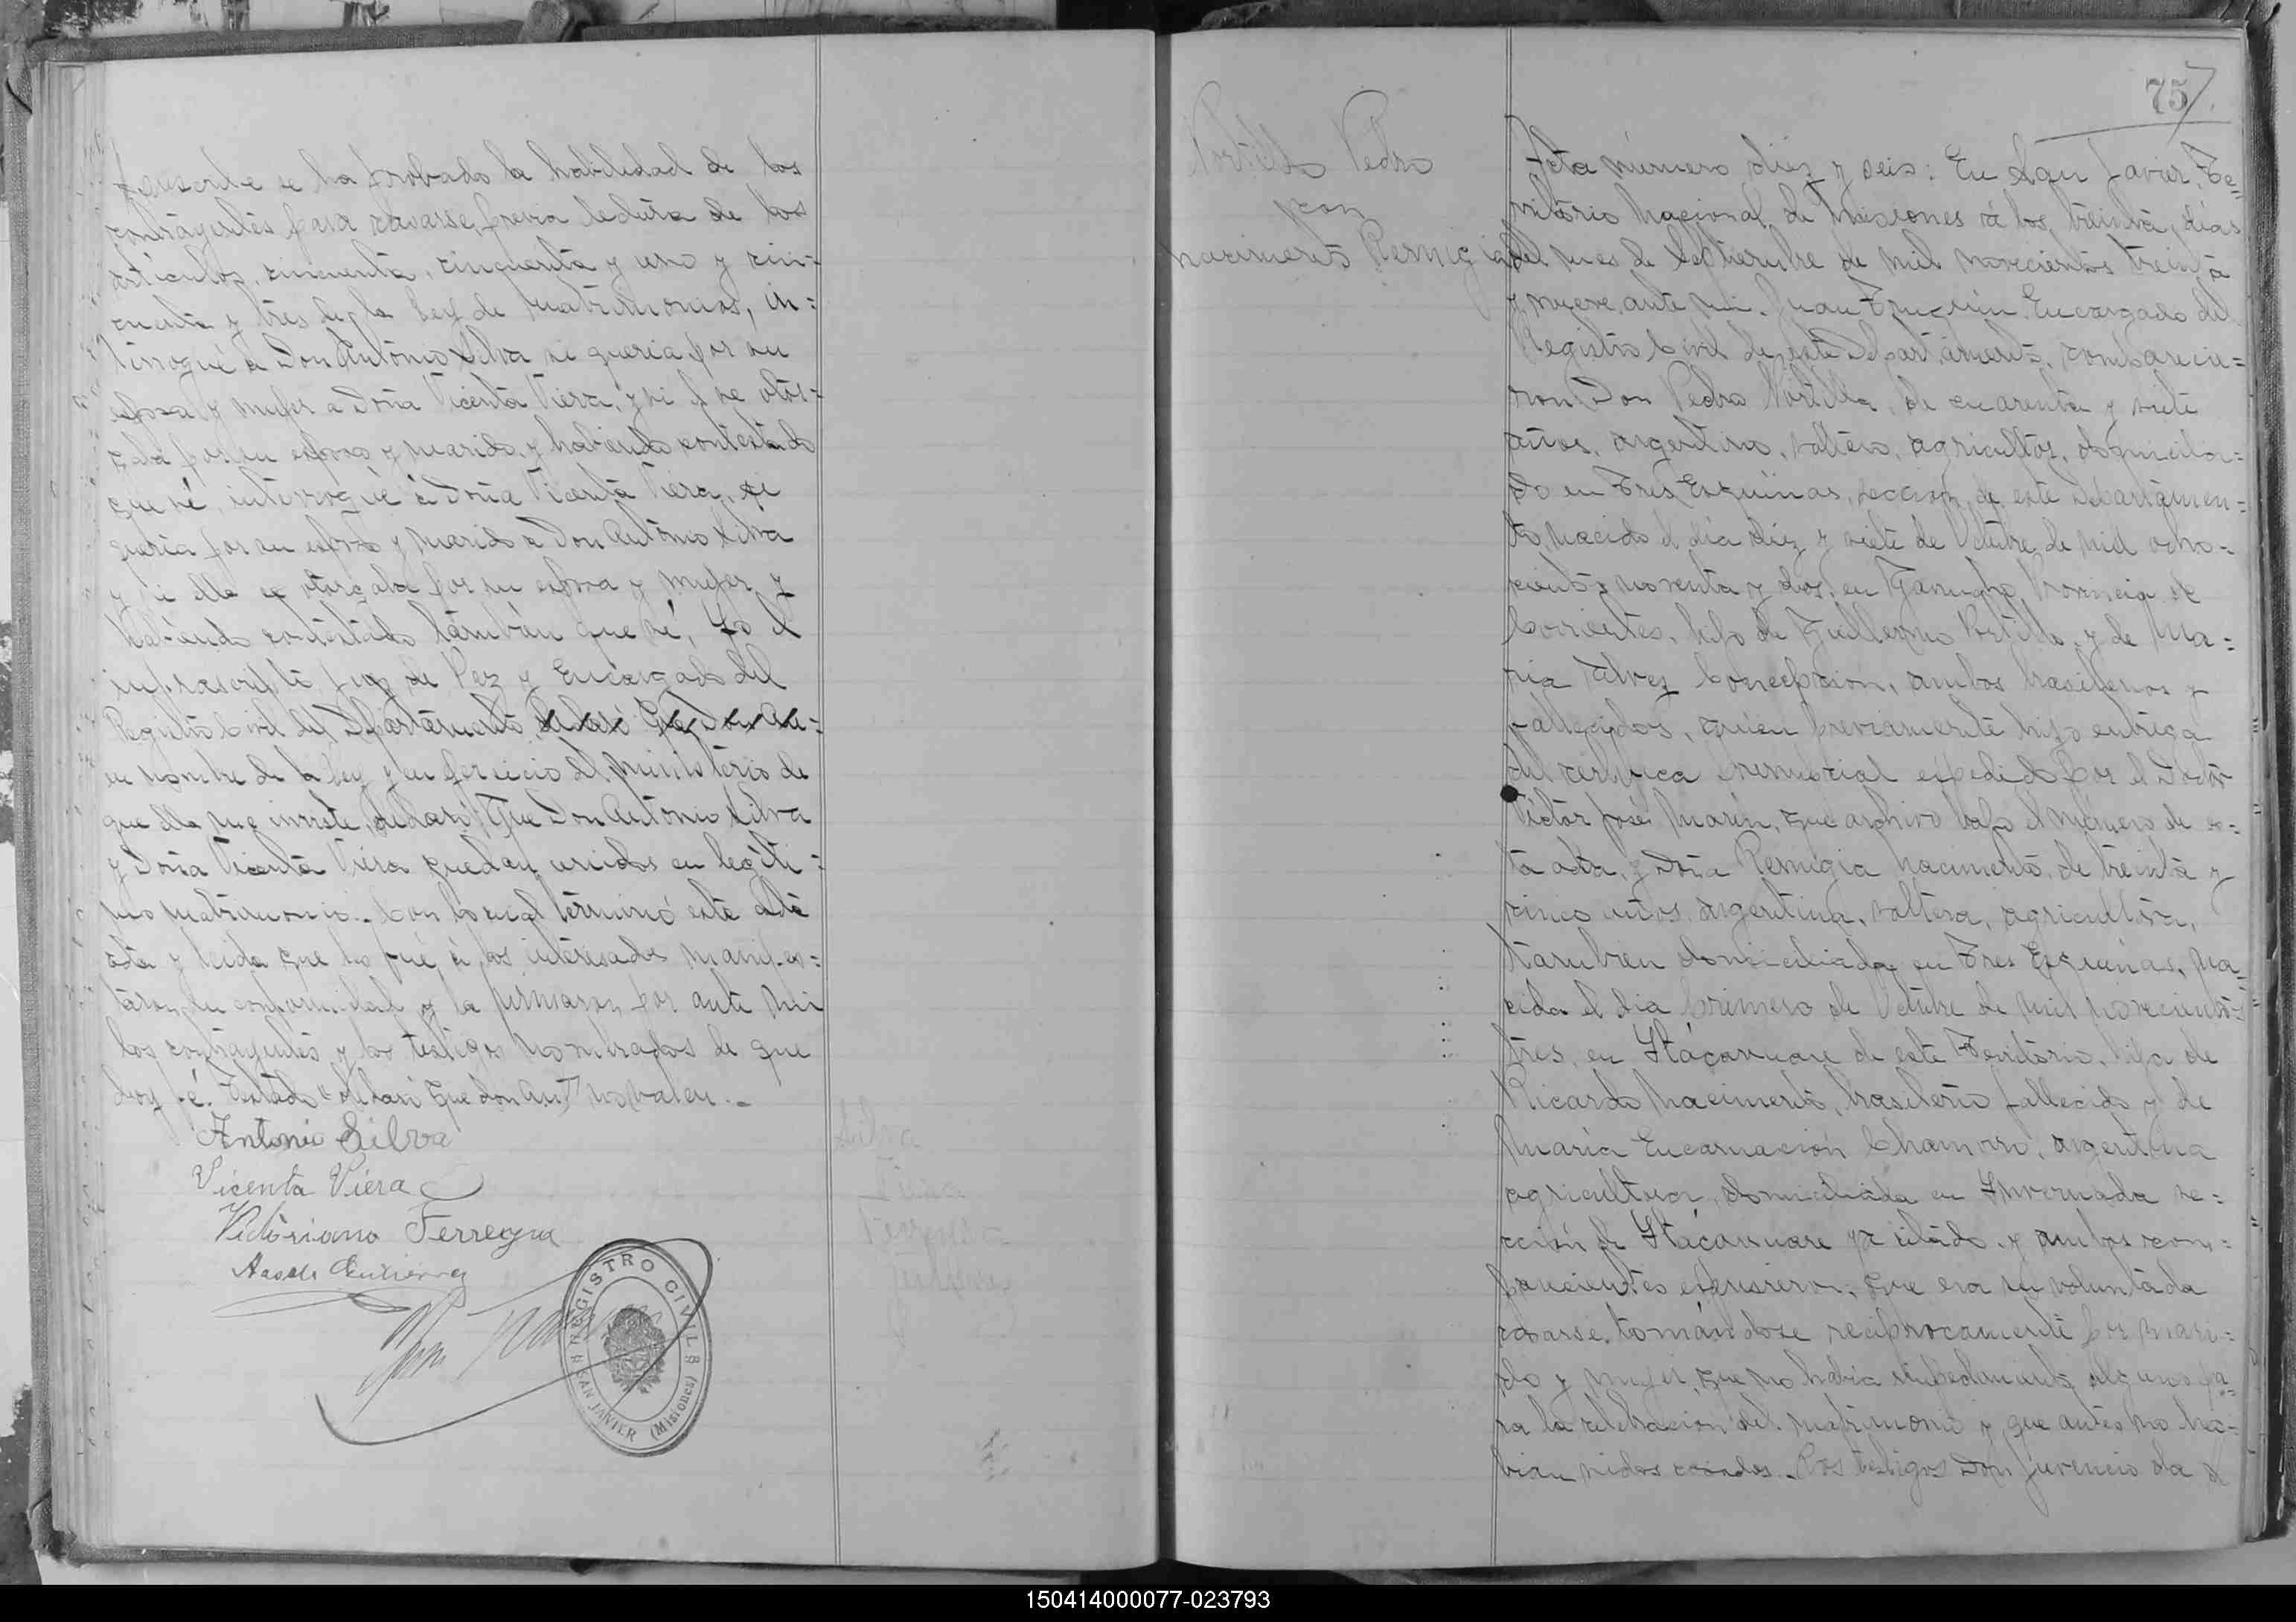 suscribe se ha probado la habilidad de los
contrayentes para casarse, previa lectura de los
artículos, cincuenta, cincuenta y uno y cin=
cuenta y tres de la Ley de Matrimonios, in=
terrogué a Don Antonio Silva si quería por su
esposa y mujer a Doña Vicenta Viera, y si él se otor=
gaba por su esposo y marido, y habiendo contestado
que sé, interrogué á Doña Vicenta Viera, si
quería por su esposo y marido a Don Antonio Silva
y si ella se otorgaba por su esposa y mujer y
habiendo contestado también que sé, Yo el
infrascripto Juez de Paz y Encargado del
Registro Civil del Departamento, declaré Que Don An=
en nombre de la Ley y en ejercicio del ministerio de
que ella me inviste, declaré: Que Don Antonio Silva
y Doña Vicenta Viera quedan unidos en legíti=
mo matrimonio. Con lo cual terminó este acto
acta y leída que les fué, á los interesados manifes=
taron su conformidad y la firmaron por ante mi
los contrayentes y los testigos nombrados de que
doy fé. Testado "declaré Que don Ant" no valen.-
Antonio Silva
Vicenta Viera
Victoriano Ferreyra
Gutierrez
REGISTRO CIVIL
SAN JAVIER (Misiones)
75
Portillo Pedro
con
Nacimento Remigia
Acta número diez y seis: En San Javier, Te=
rritorio Nacional de Misiones á los treinta días
del mes de Septiembre de mil novecientos treinta
y nueve, ante mi. Juan Encargado del
Registro Civil de este Departamento, comparecie=
ron Don Pedro Portillo, de cuarenta y siete
años, argentino, soltero, agricultor, domicilia=
do en Tres Esquinas, sección de este Departamen=
to, nacido el día diez y siete de Octubre de mil ocho=
cientos noventa y dos, en Provincia de
Corrientes, hijo de Guillermo Portillo y de Ma=
ría Alvez Concepcion, ambos brasileros y
fallecidos, quien previamente hizo entrega
del certifica prenupcial expedido por el Doctor
Victor José Marín, que archivo bajo el número de es=
ta acta, y Doña Remigia Nacimento, de treinta y
cinco años, argentina, soltera, agricultora,
tambien domiciliada en Tres Esquinas, na=
cida el dia primero de Octubre de mil novecientos
tres, en Itacaruare de este Territorio, hija de
Ricardo Nacimento, brasilero fallecido y de
María Encarnación Chamorro, argentina
agricultora, domiciliada en Invernada se=
cción de Itacaruare ya citado y ambos com=
parecientes expusieron, que era su voluntada
casarse, tomándose recíprocamente por mari=
do y mujer, que no había impedimento alguno pa=
ra la celebración del matrimonio y que antes no ha=
bían sidos casados. Los testigos Don Juvencio da
150414000077-023793